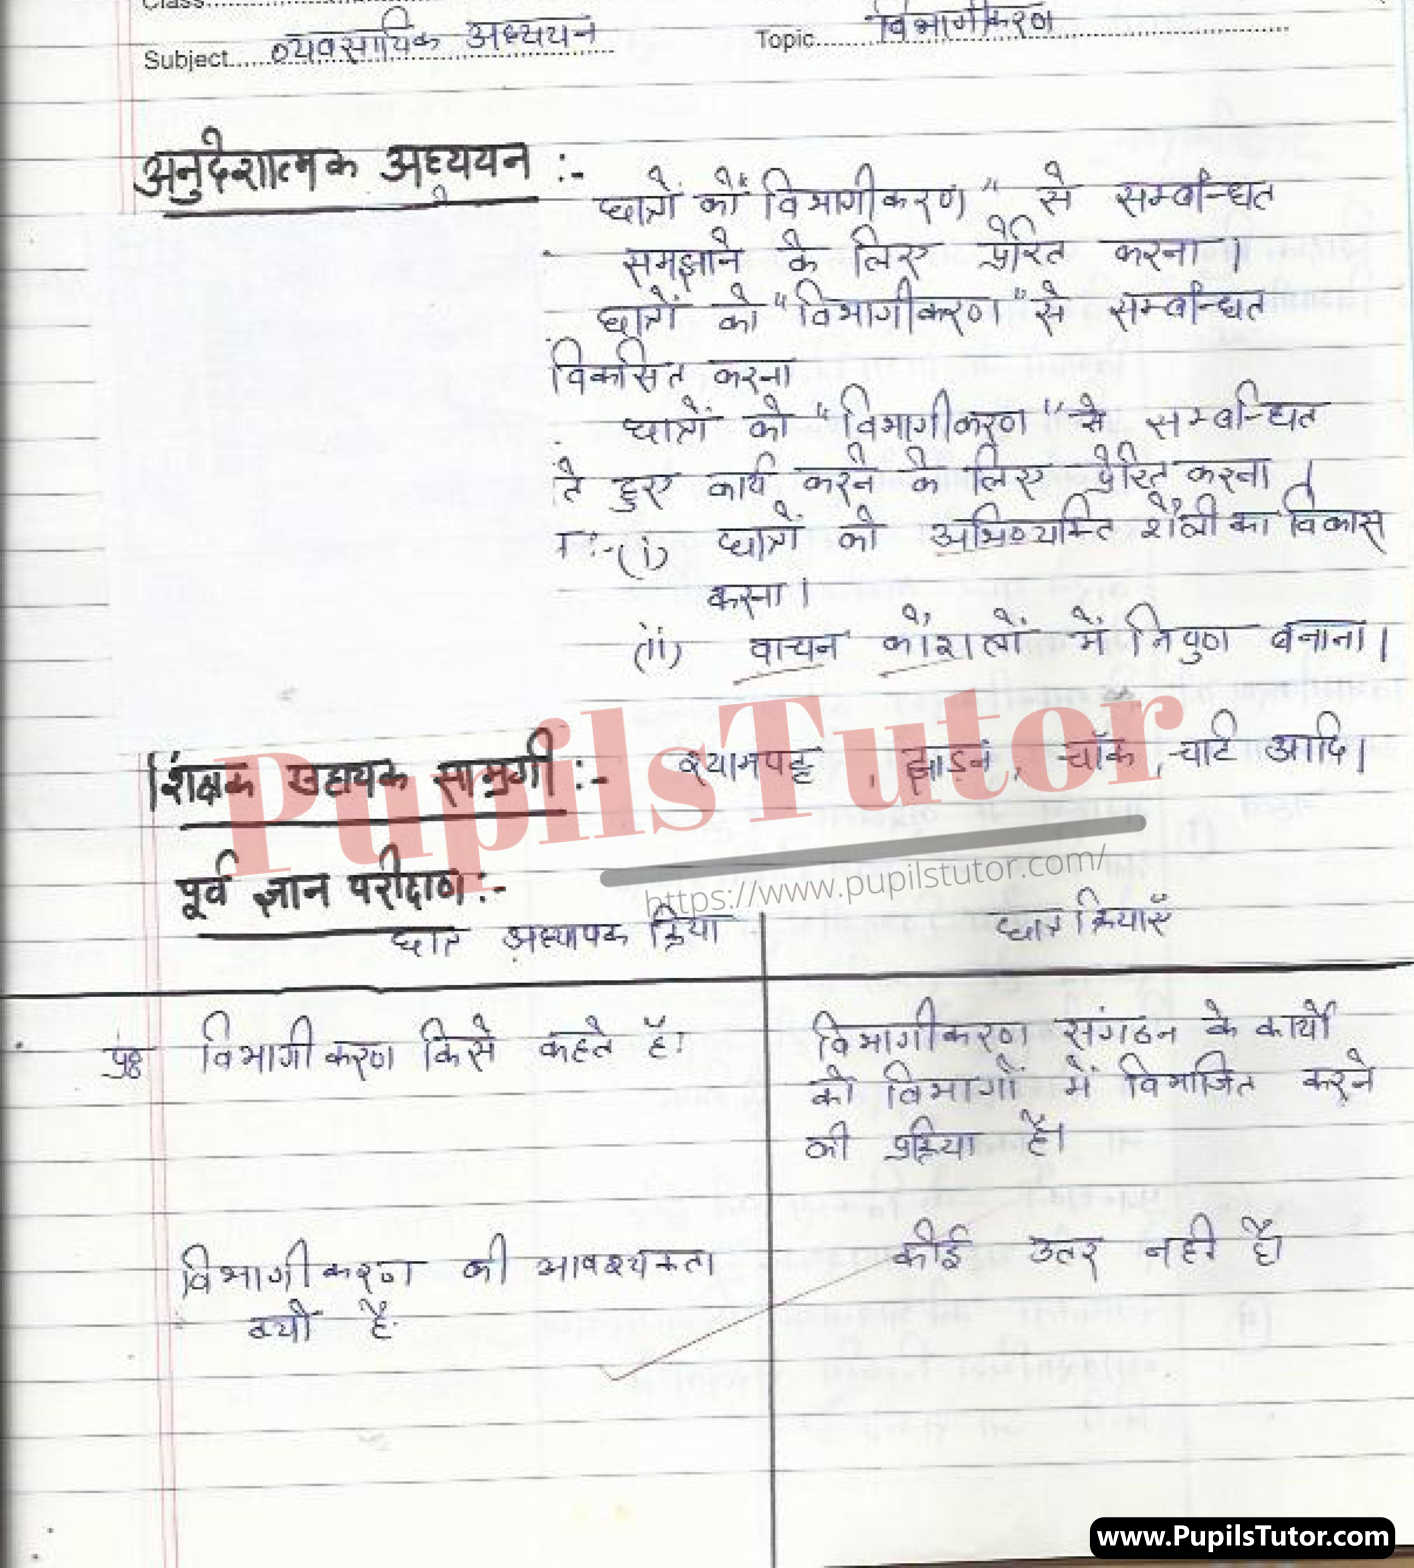 Class
Subject..... व्यवसायिक अध्ययन Topic..... विभागीकरण
अनुदेशात्मक अध्ययन :-
छात्रों को "विभागीकरण" से सम्बन्धित
समझाने के लिए प्रेरित करना ।
छात्रों को "विभागीकरण" से सम्बन्धित
विकसित करना
छात्रों को "विभागीकरण" से सम्बन्धित
ते हुए कार्य करने के लिए प्रेरित करना ।
:-(i) छात्रों को अभिव्यक्ति शैली का विकास
करना ।
(ii) वाचन कौशलों में निपुण बनाना ।
PupilsTutor
शिक्षक सहायक सामग्री :- श्यामपट्ट , झाड़न , चॉक , चार्ट आदि ।
https://www.pupilstutor.com/
पूर्व ज्ञान परीक्षण :-
छात्र अध्यापक क्रिया छात्र क्रियाएँ
विभागीकरण किसे कहते है। विभागीकरण संगठन के कार्यों
को विभागों में विभाजित करने
की प्रक्रिया है।
विभागीकरण की आवश्यकता कोई उतर नही है।
क्यों है
www.PupilsTutor.com